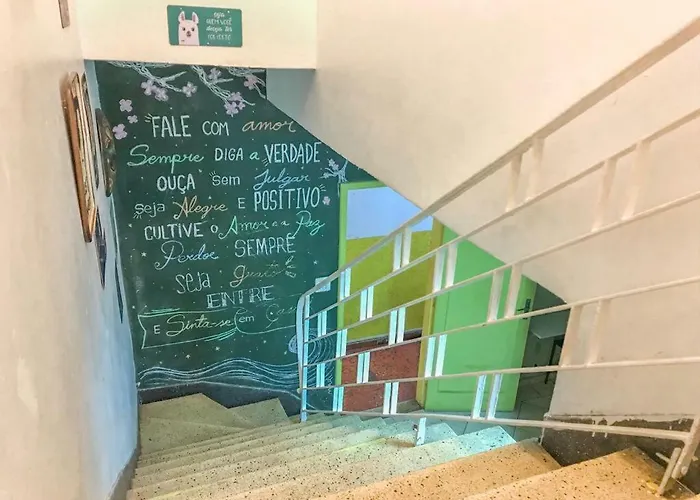 FALE com amor
Sempre DIGA a VERDADE
OUÇA Sem Julgar
seja Alegre E POSITIVO
CULTIVE o Amor e a Paz
Perdoe SEMPRE
seja grato
ENTRE
E Sinta-se em Casa